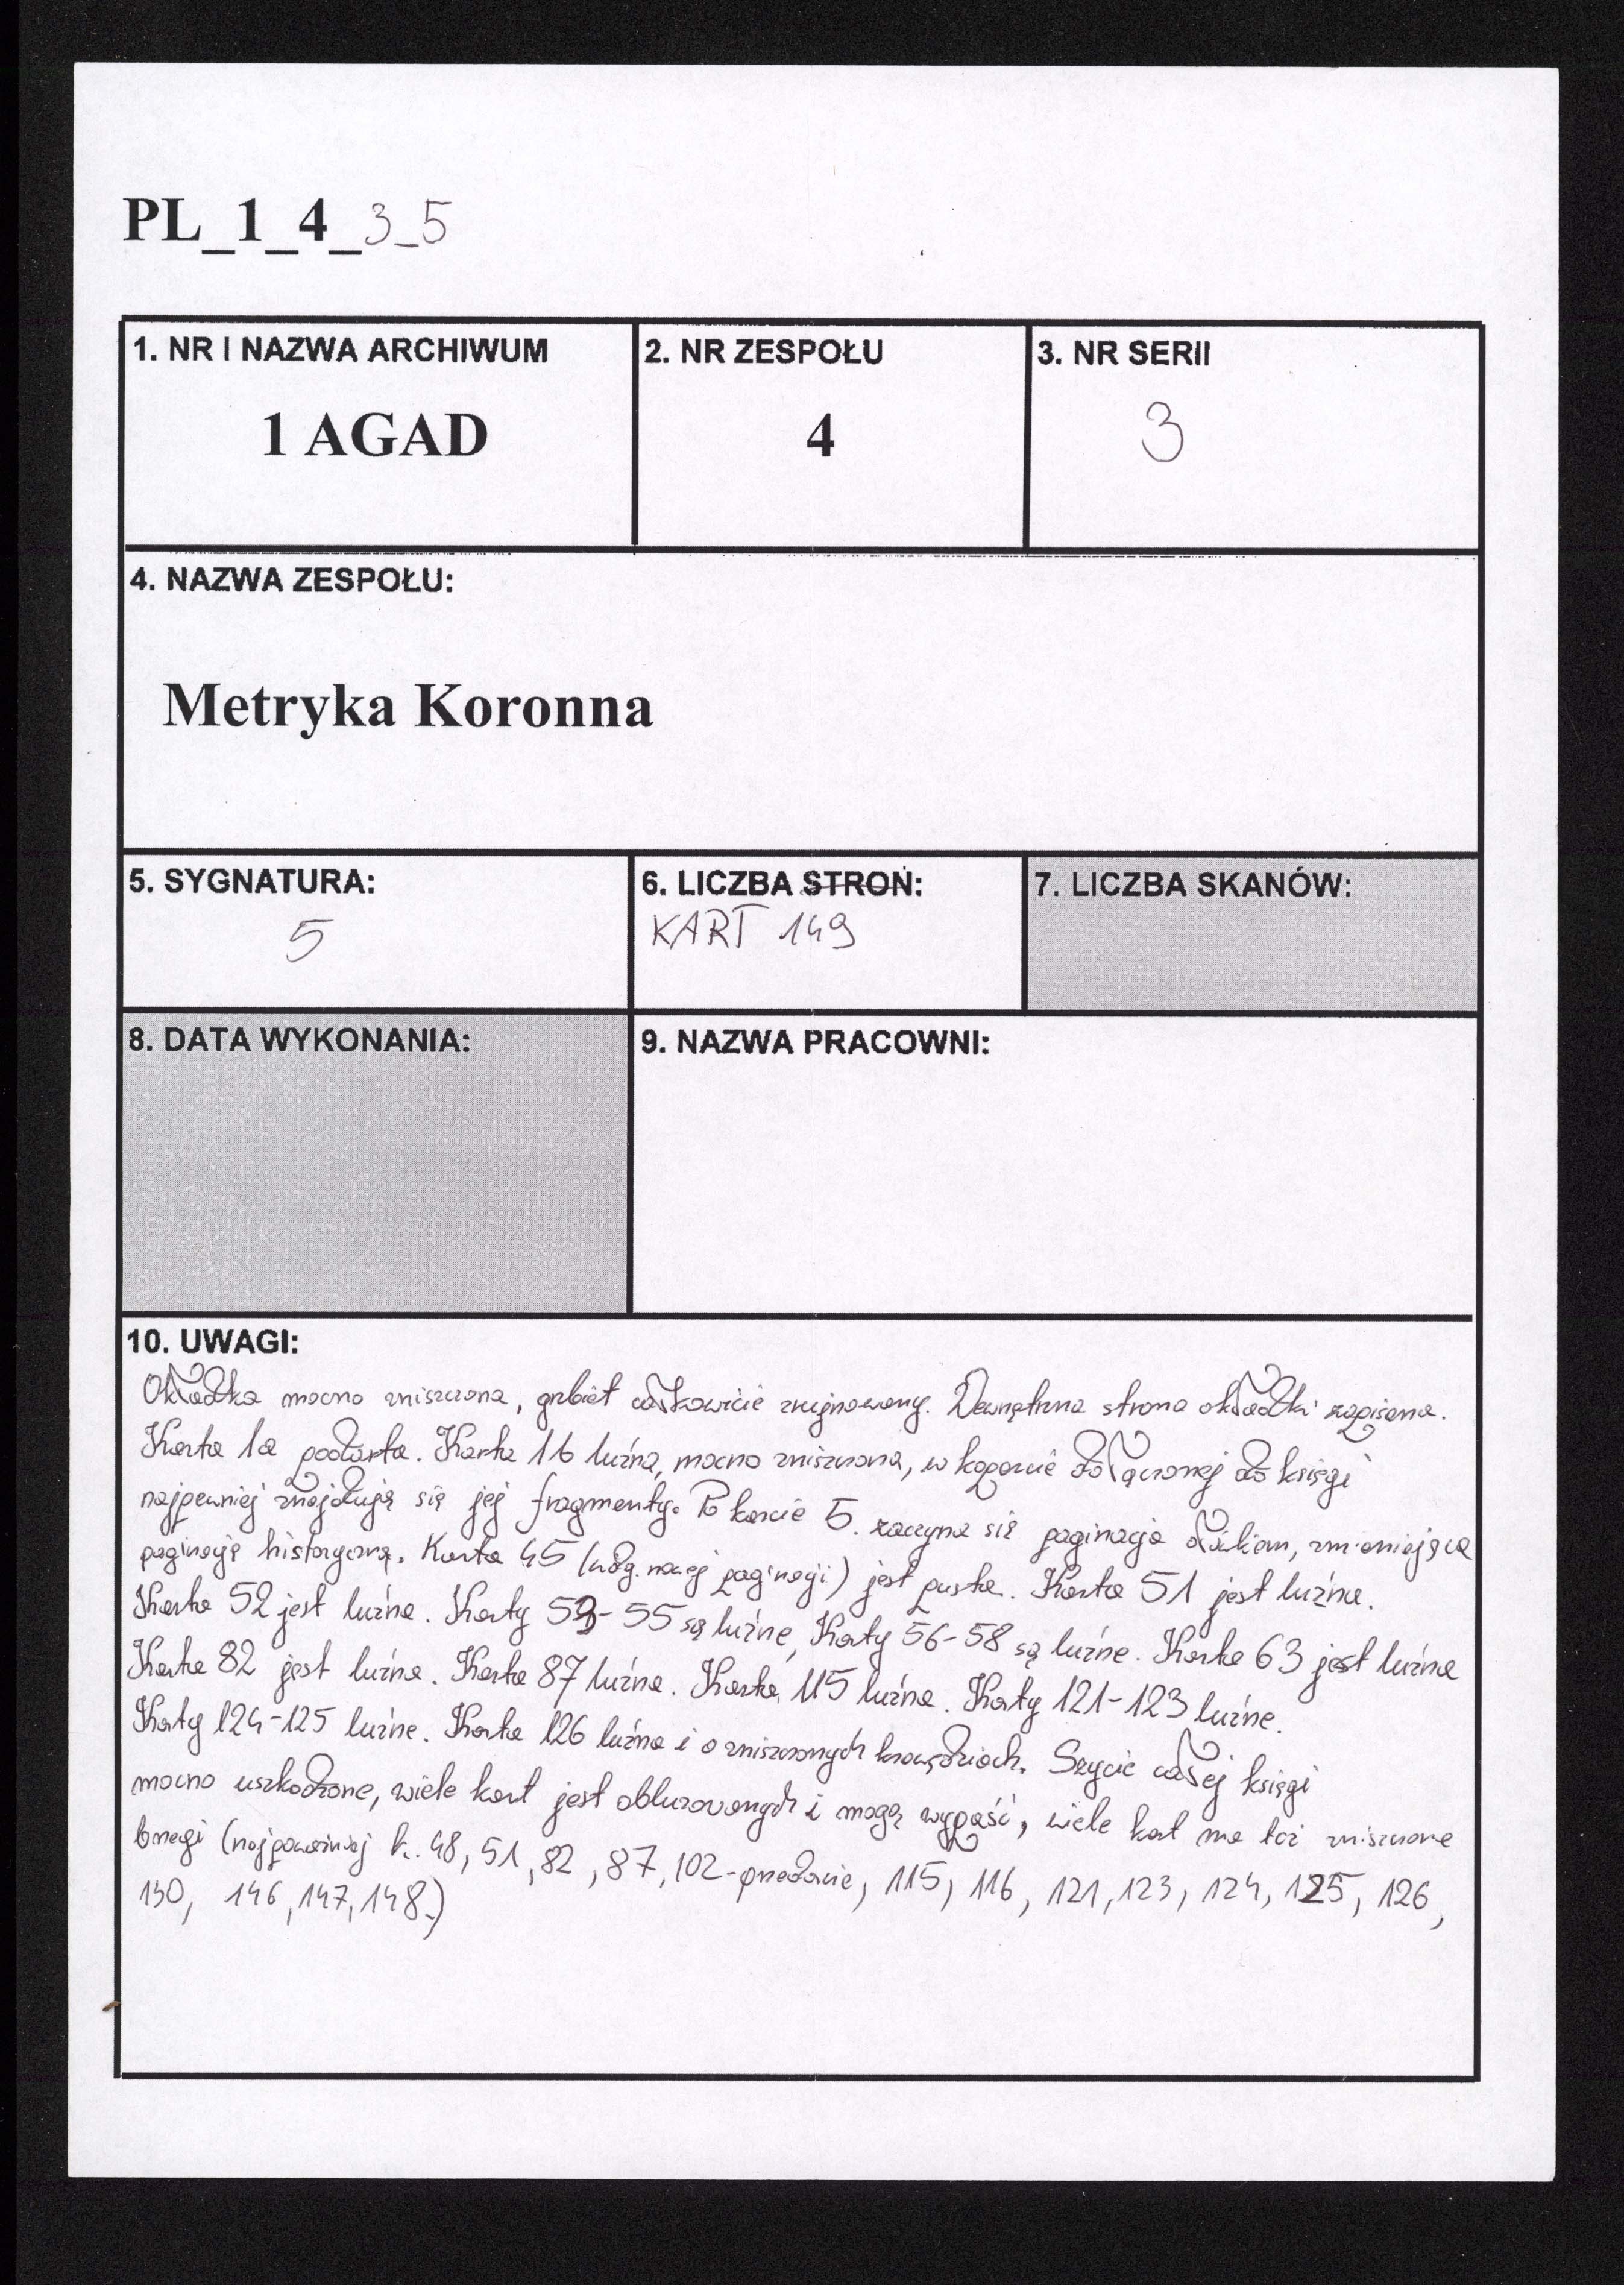 PL_1_4_3_5
1. NR I NAZWA ARCHIWUM
1 AGAD
2. NR ZESPOŁU
4
3. NR SERII
3
4. NAZWA ZESPOŁU:
Metryka Koronna
5. SYGNATURA:
5
6. LICZBA STRON:
KART 149
7. LICZBA SKANÓW:
8. DATA WYKONANIA:
9. NAZWA PRACOWNI:
10. UWAGI:
Okładka mocno zniszczona, grzbiet całkowicie zrujnowany. Wewnętrzna strona okładki zapisana.
Karta 1a podarta. Karta 1b luźna, mocno zniszczona, w kopercie dołączonej do księgi
najpewniej znajdują się jej fragmenty. Po karcie 5. zaczyna się paginacja ołówkiem, zmieniająca
paginację historyczną. Karta 45 (wdg. nowej paginacji) jest pusta. Karta 51 jest luźna.
Karta 52 jest luźna. Karty 53-55 są luźne, Karty 56-58 są luźne. Karta 63 jest luźna
Karta 82 jest luźna. Karta 87 luźna. Karta 115 luźna. Karty 121-123 luźne.
Karty 124-125 luźne. Karta 126 luźna i o zniszczonych krawędziach. Szycie całej księgi
mocno uszkodzone, wiele kart jest obluzowanych i mogą wypaść, wiele kart ma też zniszczone
brzegi (najpoważniej k. 48, 51, 82, 87, 102-przedarcie, 115, 116, 121, 123, 124, 125, 126,
130, 146, 147, 148.)